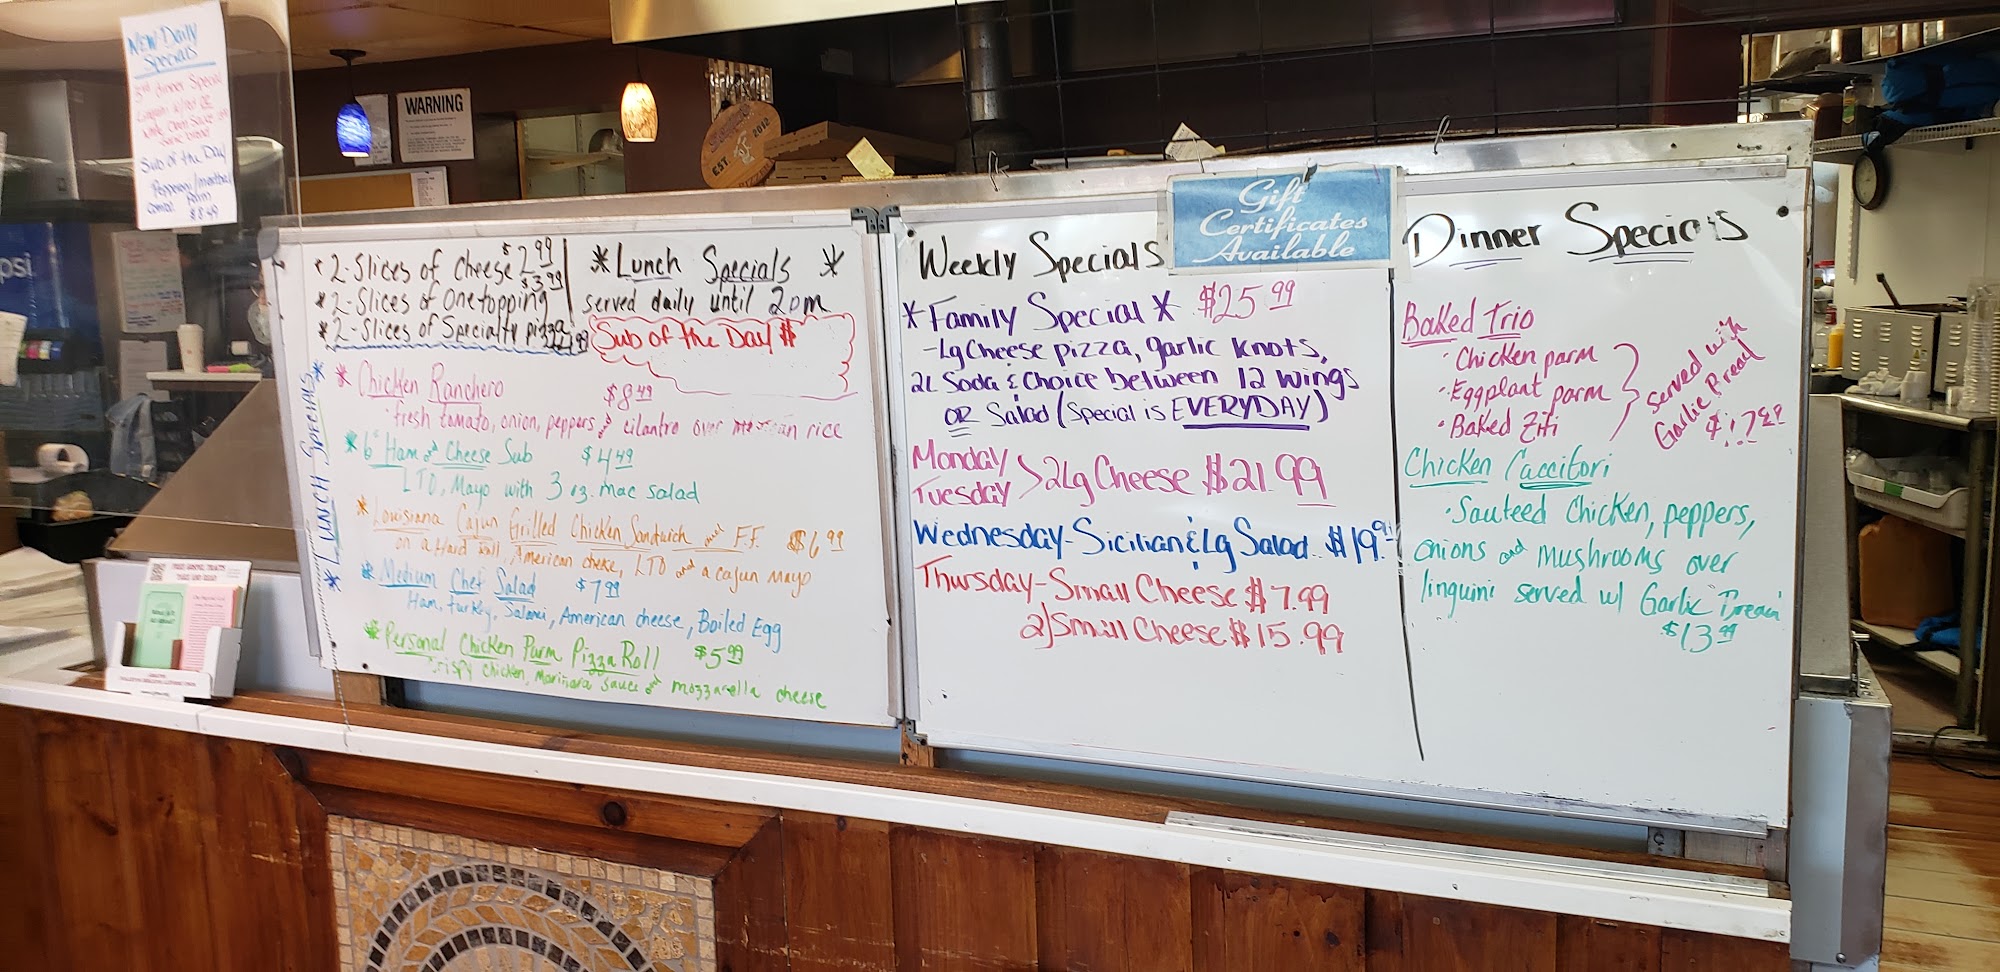 NEW Daily
Specials
Dinner Special
Sub of the Day
Pepperoni/meatball
Combo Parm
$8.49
WARNING
EST 2012
psi
Gift
Certificates
Available
*2-Slices of Cheese $2.99
*2-Slices of One topping $3.99
*2-Slices of Specialty pizza
*Lunch Specials *
served daily until 2pm
Sub of the Day $
* LUNCH SPECIALS *
* Chicken Ranchero $8.49
·fresh tomato, onion, peppers and cilantro over mexican rice
*6" Ham and Cheese Sub $4.49
LTO, Mayo with 3 oz. mac salad
*Louisiana Cajun Grilled Chicken Sandwich and F.F. $6.99
on a Hard Roll, American cheese, LTO and a cajun mayo
*Medium Chef Salad $7.99
Ham, turkey, Salami, American cheese, Boiled Egg
*Personal Chicken Parm Pizza Roll $5.99
crispy chicken, Marinara sauce and mozzarella cheese
Weekly Specials
*Family Special* $25.99
-Lg Cheese pizza, garlic knots,
2L Soda & Choice between 12 wings
OR Salad (Special is EVERYDAY)
Monday
Tuesday >2Lg Cheese $21.99
Wednesday-Sicilian & Lg Salad $19.99
Thursday-Small Cheese $7.99
2)Small Cheese $15.99
Dinner Specials
Baked Trio
·Chicken parm
·Eggplant parm
·Baked Ziti
served with
Garlic Bread
Chicken Caccitori
·Sauteed Chicken, peppers,
onions and mushrooms over
linguini served w/ Garlic Bread
$13.99